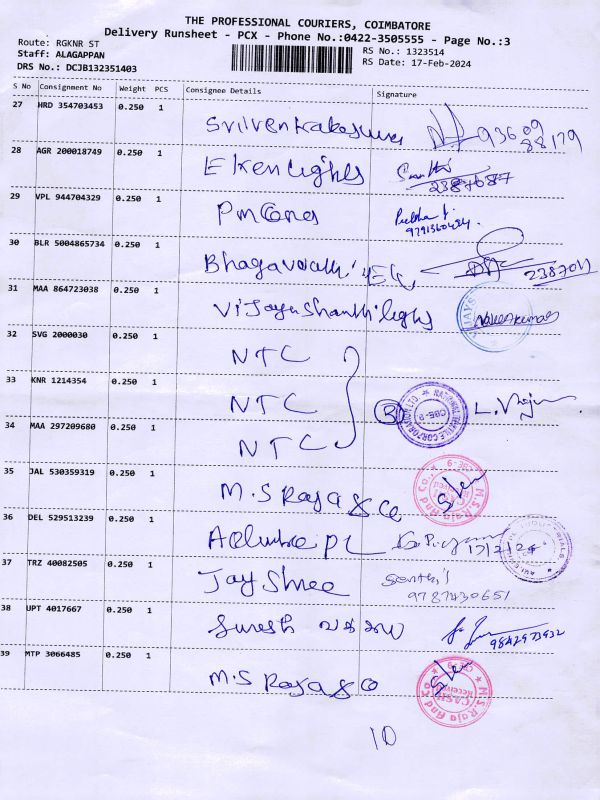 THE PROFESSIONAL COURIERS, COIMBATORE
Delivery Runsheet - PCX - Phone No.:0422-3505555 - Page No.:3
Route: RGKNR ST
RS No.: 1323514
Staff: ALAGAPPAN
RS Date: 17-Feb-2024
DRS No.: DCJB132351403
S No Consignment No Weight PCS Consignee Details Signature
27 HRD 354703453 0.250 1
93609
88179
28 AGR 200018749 0.250 1 Eken lights
2387687
29 VPL 944704329 0.250 1
9791360484
30 BLR 5004865734 0.250 1 Bhagavathi
31 MAA 864723038 0.250 1 Vijayashanthi lights
32 SVG 2000030 0.250 1 NTC
33 KNR 1214354 0.250 1 NTC 3
34 MAA 297209680 0.250 1 NTC
35 JAL 530359319 0.250 1 M.S Raja & Co
36 DEL 529513239 0.250 1 17/2/24
37 TRZ 40082505 0.250 1 Jay Shree
9787430651
38 UPT 4017667 0.250 1 Suresh
9842973932
39 MTP 3066485 0.250 1 M.S Raja & Co
10